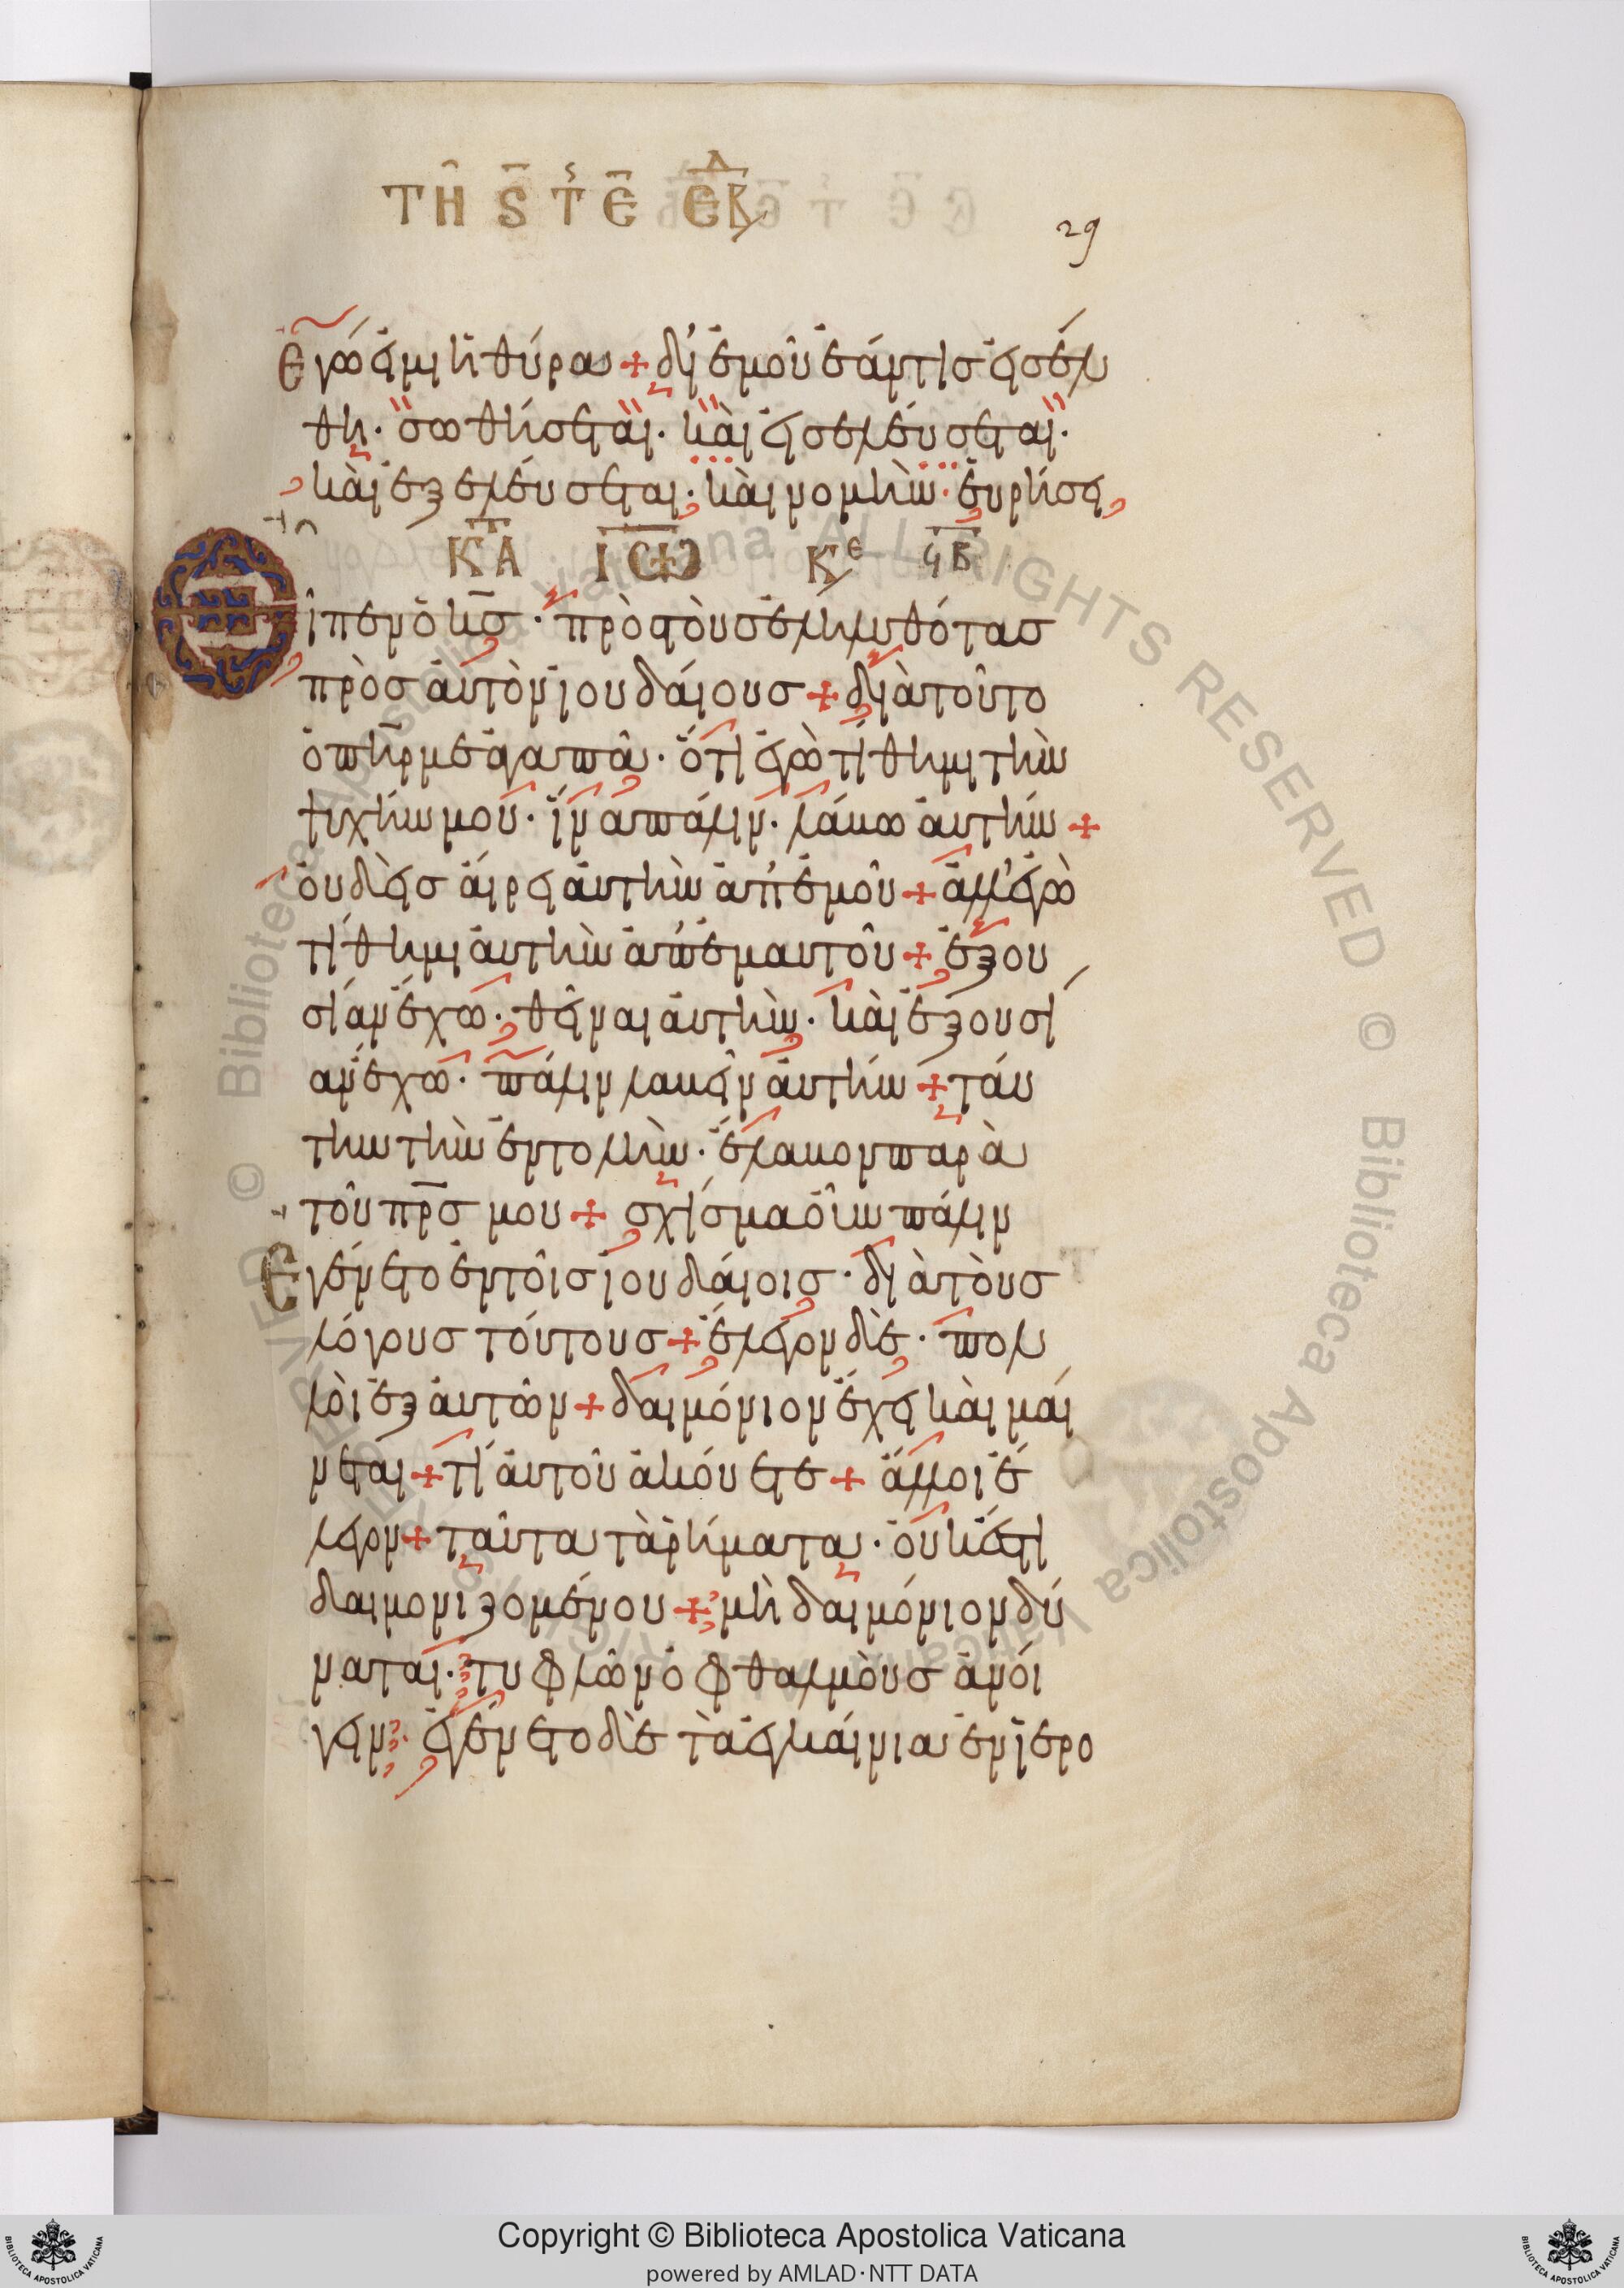 ΤΗ Ϛ Τ Ε ΕΒΔ
29
Ἐγώ εἰμι ἡ θύρα + δι' ἐμοῦ ἐάν τις εἰσέλ
θη· σωθήσεται· καὶ εἰσελεύσεται·
καὶ ἐξελεύσεται· καὶ νομὴν· εὑρήσει
ΚΤΑ ΙΩ Κε ϤΒ
ἶπεν ὁ κσ· πρὸς τοὺς ἐληλυθότας
πρὸς ἀυτὸν ἰουδάιους + διὰ τοῦτο
ὁ πηρ με ἀγαπᾶ· ὅτι ἐγὼ τίθημι τὴν
ψυχήν μου· ἵνα πάλιν· λάβω ἀυτήν +
ὀυδὲις ἄιρει ἀυτὴν ἀπ' ἐμοῦ + ἀλλ' ἐγὼ
τίθημι ἀυτὴν ἀπ' ἐμαυτοῦ + ἐξου
σίαν ἔχω· θεῖναι ἀυτὴν· καὶ ἐξουσί
αν ἔχω· πάλιν λαβεῖν ἀυτήν + τάυ
την τὴν ἐντολὴν· ἔλαβον παρὰ
τοῦ πρσ μου + σχίσμα ὀῦν πάλιν
Ἐγένετο ἐν τοῖς ἰουδάιοις· διὰ τοὺς
λόγους τόυτους + ἔλεγον δὲ· πολ
λὸι ἐξ ἀυτῶν + δαιμόνιον ἔχει καὶ μάι
νεται + τί ἀυτοῦ ἀκόυετε + ἄλλοι ἔ
λεγον + ταῦτα τὰ ῥήματα· ὀυκ ἔστι
δαιμονιζομένου + μὴ δαιμόνιον δύ
ναται· τυφλῶν ὀφθαλμοὺς ἀνόι
γειν· ἐγένετο δὲ τὰ ἐγκάινια ἐν ἱερο
Copyright © Biblioteca Apostolica Vaticana
powered by AMLAD·NTT DATA